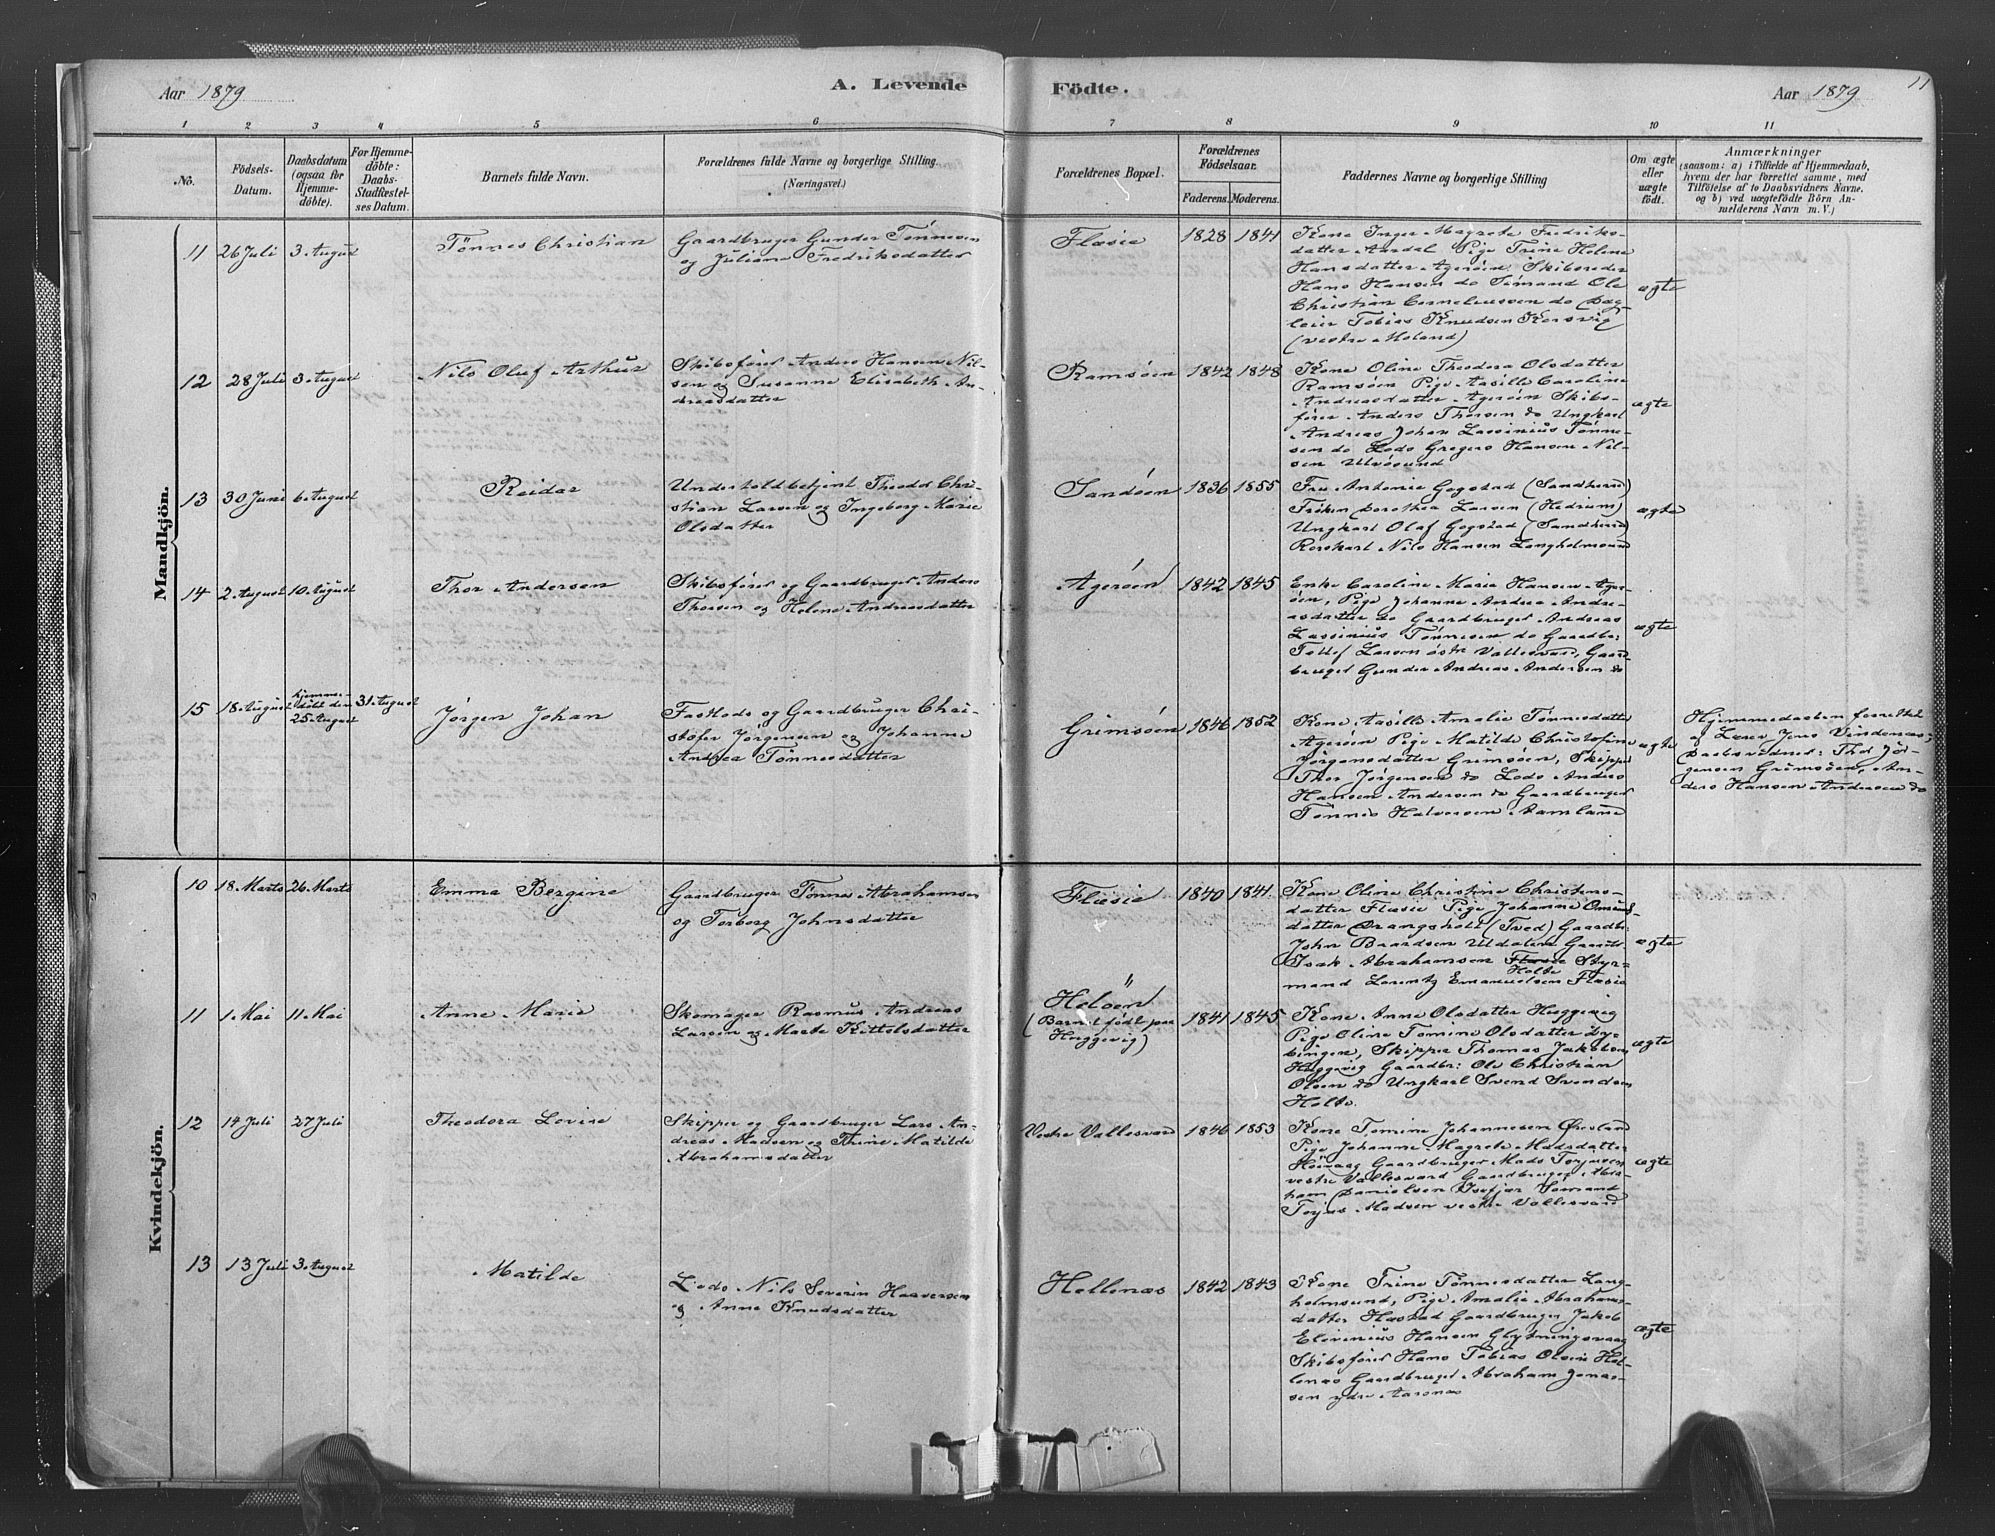 Aar 1879
A. Levende
Födte.
Aar 1879
11
1 2 3 4 5 6 7 8 9 10 11
No.
Födsels-
Datum.
Daabsdatum
(ogsaa for
Hjemme-
döbte).
For Hjemme-
döbte:
Daabs-
Stadfæstel-
ses Datum.
Barnets fulde Navn.
Forældrenes fulde Navne og borgerlige Stilling.
(Næringsvei.)
Forældrenes Bopæl.
Forældrenes
Födselsaar.
Faderens. Moderens.
Faddernes Navne og borgerlige Stilling
Om ægte
eller
uægte
födt.
Anmærkninger
(saasom: a) i Tilfælde af Hjemmedaab,
hvem der har forrettet samme, med
Tilföielse af to Daabsvidners Navne.
og b) ved uægtefödte Börn An-
melderens Navn m. V.)
Mandkjön.
11 26 Juli 3 August
Tønnes Christian
Gaardbruger Gunder Tønnesen
og Juliane Fredriksdatter
Flæsie
1828 1841
Kone Inger Magrete Fredriks-
datter Aardal Pige Trine Helene
Hansdatter Agerøen Skibsreder
Hans Hansen do Sømand Ole
Christian Corneliussen do Dag-
leier Tobias Knudsen Korsvig
(vestre Moland)
ægte
12 28 Juli 3 August
Nils Oluf Arthur
Skibsfører Anders Hansen Nil-
sen og Susanne Elisabeth An-
dreasdatter
Ramsøen
1842 1848
Kone Oline Theodora Olsdatter
Ramsøen Pige Aasille Caroline
Andreasdatter Agerøen Skibs-
fører Anders Thorsen do Ungkarl
Andreas Johan Lassinius Tønne-
sen do Lods Gregers Hansen Nil-
sen Ulvøsund
ægte
13 30 Juni 6 August
Reidar
Undertoldbetjent Theodor Chri-
stian Larsen og Ingeborg Marie
Olsdatter
Sandøen
1836 1855
Fru Antonie Gogstad (Sandherred)
Frøken Dorothea Larsen (Hedrum)
Ungkarl Olaf Gogstad (Sandherred)
Rorskarl Nils Hansen Langholmsund
ægte
14 2 August 10 August
Thor Andersen
Skibsfører og Gaardbruger Anders
Thorsen og Helene Andreasdatter
Agerøen
1842 1845
Enke Caroline Marie Hansen Age-
øen, Pige Johanne Andrea Andre-
asdatter do Gaardbruger Andreas
Lassinius Tønnesen do Gaardbr:
Tellef Larsen østre Vallesværd, Gaard-
bruger Gunder Andreas Andersen do
ægte
15 18 August
hjemme-
døbt den
25 August
31 August
Jørgen Johan
Fastlods og Gaardbruger Chri-
stofer Jørgensen og Johanne
Andrea Tønnesdatter
Grimsøen
1846 1852
Kone Aasille Amalie Tønnesdatter
Agerøen Pige Matilde Christofine
Jørgensdatter Grimsøen, Skipper
Thor Jørgensen do Lods Anders
Hansen Andersen do Gaardbruger
Tønnes Halvorsen Aamland
ægte
Hjemmedaaben forrettet
af Lærer Jens Vindenæs;
Daabsvidner: Thor Jør-
gensen Grimsøen, An-
ders Hansen Andersen do
Kvindekjön.
10 18 Marts 26 Marts
Emma Bergine
Gaardbruger Tønnes Abrahamsen
og Torborg Johnsdatter
Flæsie
1840 1841
Kone Oline Christine Christens-
datter Flæsie Pige Johanne Omunds-
datter Drangsholt (Tved) Gaardbr:
John Baardsen Uldalen Gaardbr.
Isak Abrahamsen Flæsie Styr-
Holte
mand Lorentz Emanuelsen Flæsie
ægte
11 1 Mai 11 Mai
Anne Marie
Skomager Rasmus Andreas
Larsen og Marte Kittelsdatter
Heløen
(Barnet født paa
Heggevig)
1841 1845
Kone Anne Olsdatter Heggevig
Pige Oline Tomine Olsdatter Dy-
bingen, Skipper Thomas Jakobsen
Heggevig Gaardbr: Ole Christian
Olsen do Ungkarl Svend Svendsen
Holte.
ægte
12 14 Juli 27 Juli
Theodora Lovise
Skipper og Gaardbruger Lars An-
dreas Madsen og Thrine Matilde
Abrahamsdatter
Vestre Vallesværd
1846 1853
Kone Tomine Johannesen Ørsland
Pige Johanne Magrete Madsdatter
Høivaag Gaardbruger Mads Torjussen
vestre Vallesværd Gaardbruger Abra-
ham Danielsen Isefjær Sømand
Torjus Madsen vestre Vallesværd
ægte
13 13 Juli 3 August
Matilde
Lods Nils Severin Haaversen
og Anne Knudsdatter
Hellenæs
1842 1843
Kone Trine Tønnesdatter Lang-
holmsund, Pige Amalie Abrahams-
datter Hæstad Gaardbruger Jakob
Elivinius Hansen Glytningsvaag
Skibsfører Hans Tobias Olsen Hel-
lenæs Gaardbruger Abraham Jonas-
sen ydre Aarsnæs
ægte